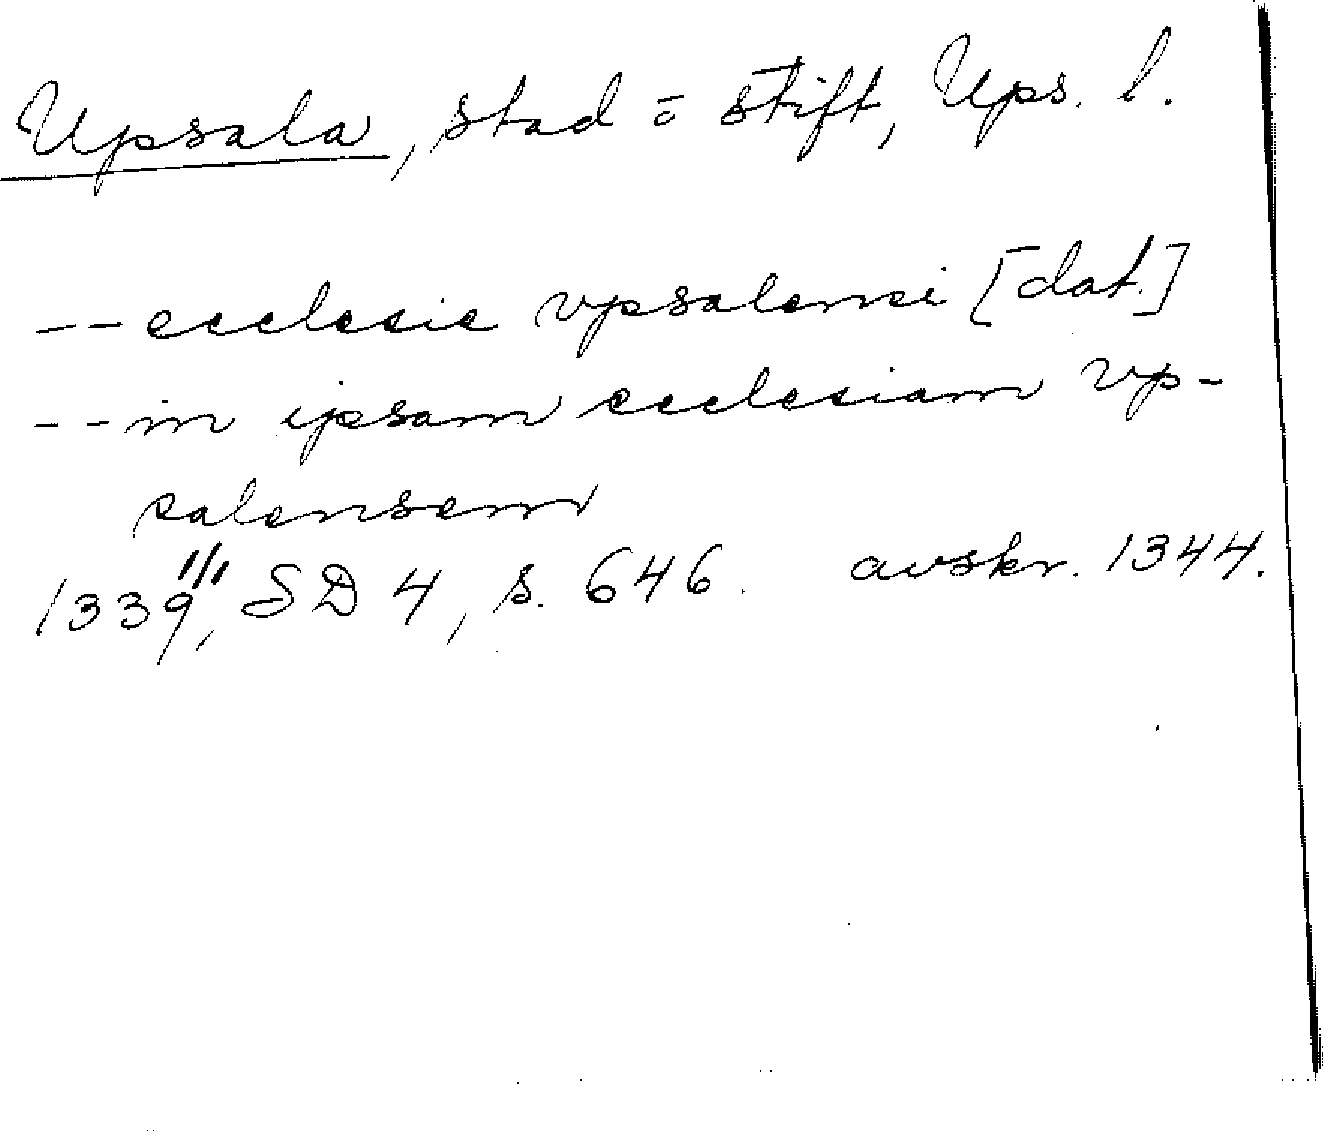 Upsala, stad o stift, Ups. l.
-- ecclesie vpsalensi [dat.]
-- in ipsam ecclesiam vp-
salensem
1339 1/1, SD 4, s. 646. avskr. 1344.